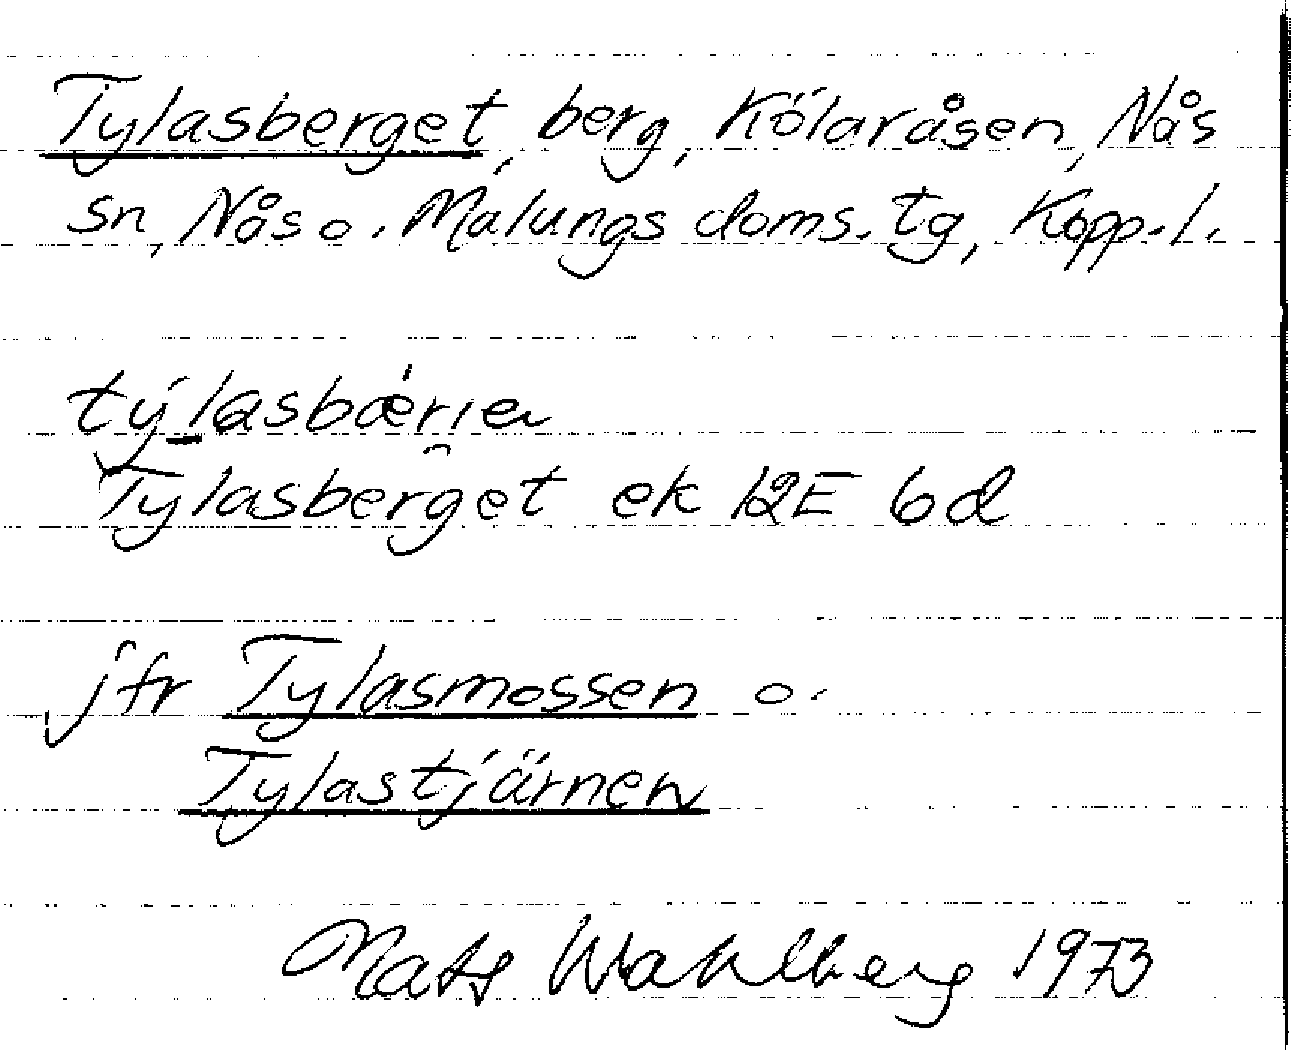 Tylasberget, berg, Kölaråsen, Nås
sn, Nås o. Malungs doms. tg, Kopp. l.
týlasbær̂ıe
Tylasberget ek 12E 6d
jfr Tylasmossen o.
Tylastjärnen
Mats Wahlberg 1973